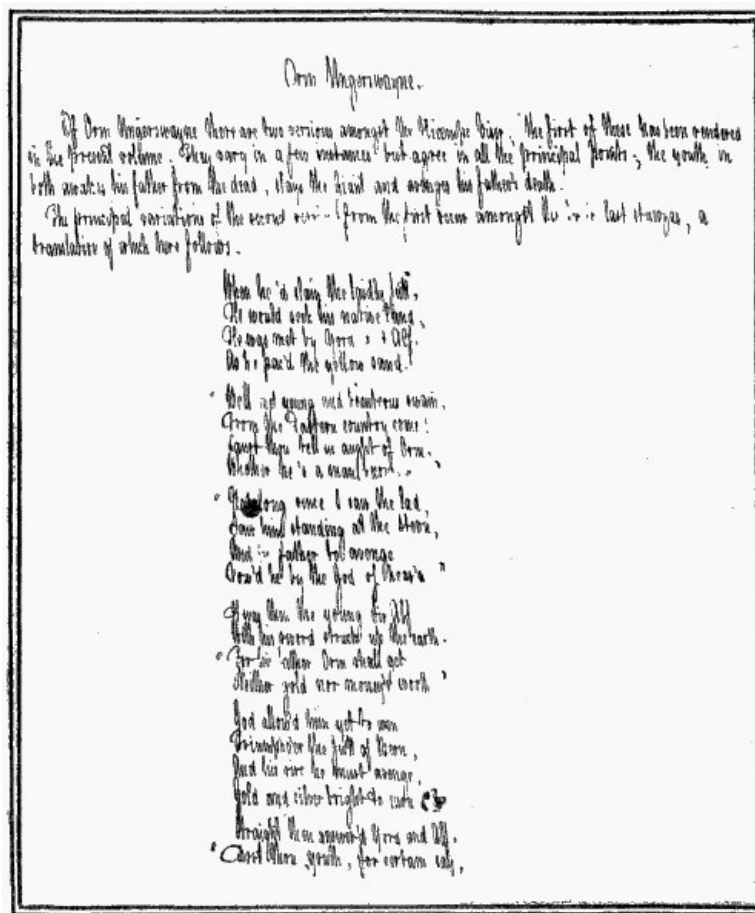 Orm Ungerswayne.
Of Orm Ungerswayne there are two versions amongst the Kiæmpe Viser, the first of these has been rendered
in the present volume. They vary in a few instances but agree in all the principal points; the youth in
both awakes his father from the dead, slays the giant and avenges his father's death.
The principal variations of the second from the first occur amongst the last stanzas, a
translation of which here follows.
When he'd slain the laidly Jutt,
He would seek his native land,
He was met by Gora + Alf.
As he pac'd the yellow sand.
" Well met young and beauteous swain,
From the Eastern country come!
Canst thou tell us aught of Orm.
Whether he's a man
" Not long since I saw the lad,
Saw him standing at the Steen,
And father to avenge
Vow'd he by the God of Heav'n "
It was then the young Sir Alf
With his sword struck up the earth.
" For his father Orm shall get
Neither gold nor money's worth "
God allow'd him yet to win
Triumph o'er the Jutt of Steen,
And his sire he must avenge,
Gold and silver bright to
Straight then answer'd Gora and Alf.
" Canst thou youth, for certain say,